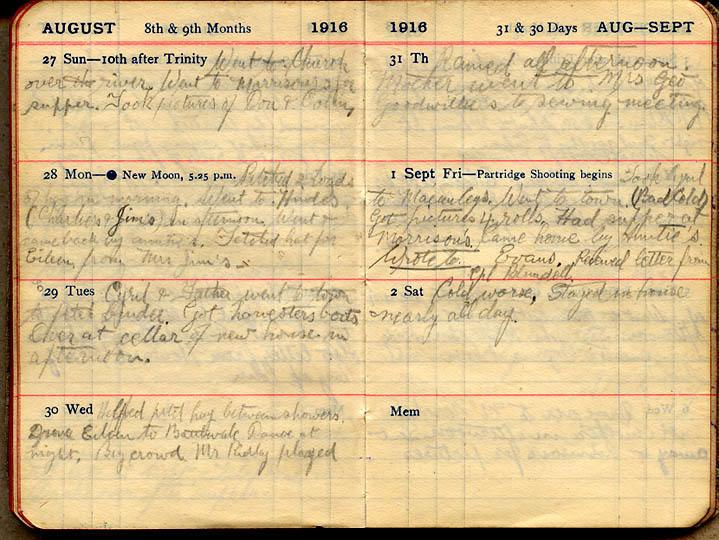 AUGUST 8th & 9th Months 1916
27 Sun—10th after Trinity Went to Church
over the river. Went to Morrison's for
supper. Took pictures of Don & Colin,
28 Mon—● New Moon, 5.25 p.m. 2 Loads
in morning. Went to Hindes
(Charlie's & Jim's) in afternoon. Went &
came back by auntie's. Fetched hat for
Eileen from Mrs Jim's
29 Tues Cyril & Father went to town
to fetch binder. Got harvesters boots
Over at cellar of new house in
afternoon.
30 Wed Helped pitch hay between showers.
Drove Eileen to Dance at
night. Big crowd. Mr Ridley played
1916 31 & 30 Days AUG—SEPT
31 Th Rained all afternoon
Mother went to Mrs Geo
Goodwillie's to sewing meeting.
1 Sept Fri—Partridge Shooting begins Took Cyril
to Macauleys. Went to town. (Bad Cold)
Got pictures 4 rolls. Had supper at
Morrison's. Came home by Auntie's.
Wrote to Evans. Received letter from
2 Sat Cold worse, Stayed in house
nearly all day.
Mem